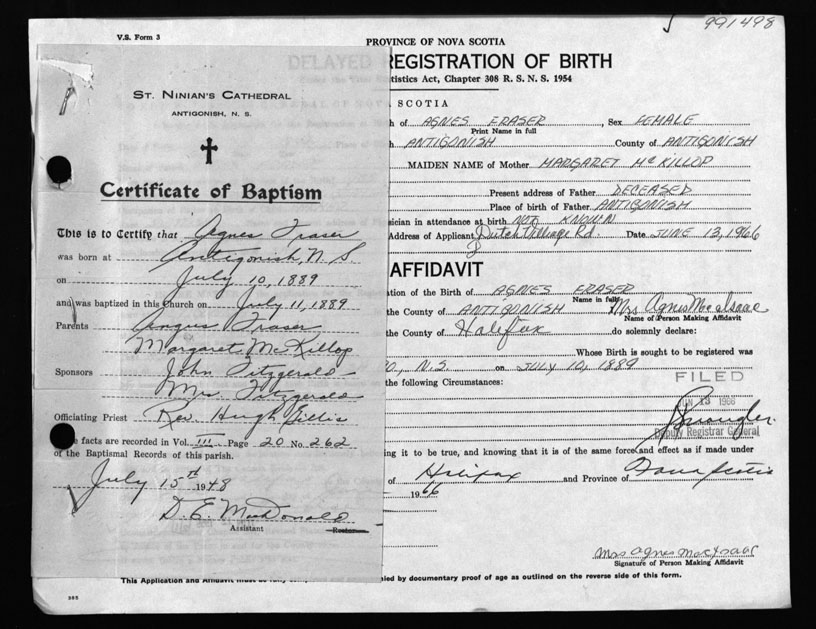 991498
V.S. Form 3
PROVINCE OF NOVA SCOTIA
DELAYED REGISTRATION OF BIRTH
tistics Act, Chapter 308 R. S. N. S. 1954
SCOTIA
h of AGNES FRASER, Sex FEMALE
Print Name in full
h ANTIGONISH County of ANTIGONISH
MAIDEN NAME of Mother MARGARET McKILLOP
Present address of Father DECEASED
Place of birth of Father ANTIGONISH
sician in attendance at birth NOT KNOWN
Address of Applicant Dutch Village Rd. Date JUNE 13, 1966
AFFIDAVIT
ation of the Birth of AGNES FRASER
Name in full
the County of ANTIGONISH Mrs Agnes MacIsaac
Name of Person Making Affidavit
the County of Halifax do solemnly declare:
Whose Birth is sought to be registered was
O., N.S. on JULY 10, 1889
the following Circumstances:
FILED
JUN 13 1966
Deputy Registrar General
ing it to be true, and knowing that it is of the same force and effect as if made under
of Halifax and Province of Nova Scotia
1966
Mrs Agnes MacIsaac
Signature of Person Making Affidavit
This Application and Affidavit must be fully nied by documentary proof of age as outlined on the reverse side of this form.
ST. NINIAN'S CATHEDRAL
ANTIGONISH, N. S.
Certificate of Baptism
This is to Certify that Agnes Fraser
was born at Antigonish, N. S.
on July 10, 1889
and was baptized in this Church on July 11, 1889
Parents Angus Fraser
Margaret McKillop
Sponsors John Fitzgerald
Mrs. Fitzgerald
Officiating Priest Rev. Hugh Gillis
e facts are recorded in Vol. III Page 20 No. 262
of the Baptismal Records of this parish.
July 15th 1948
D. E. MacDonald
Assistant Rector